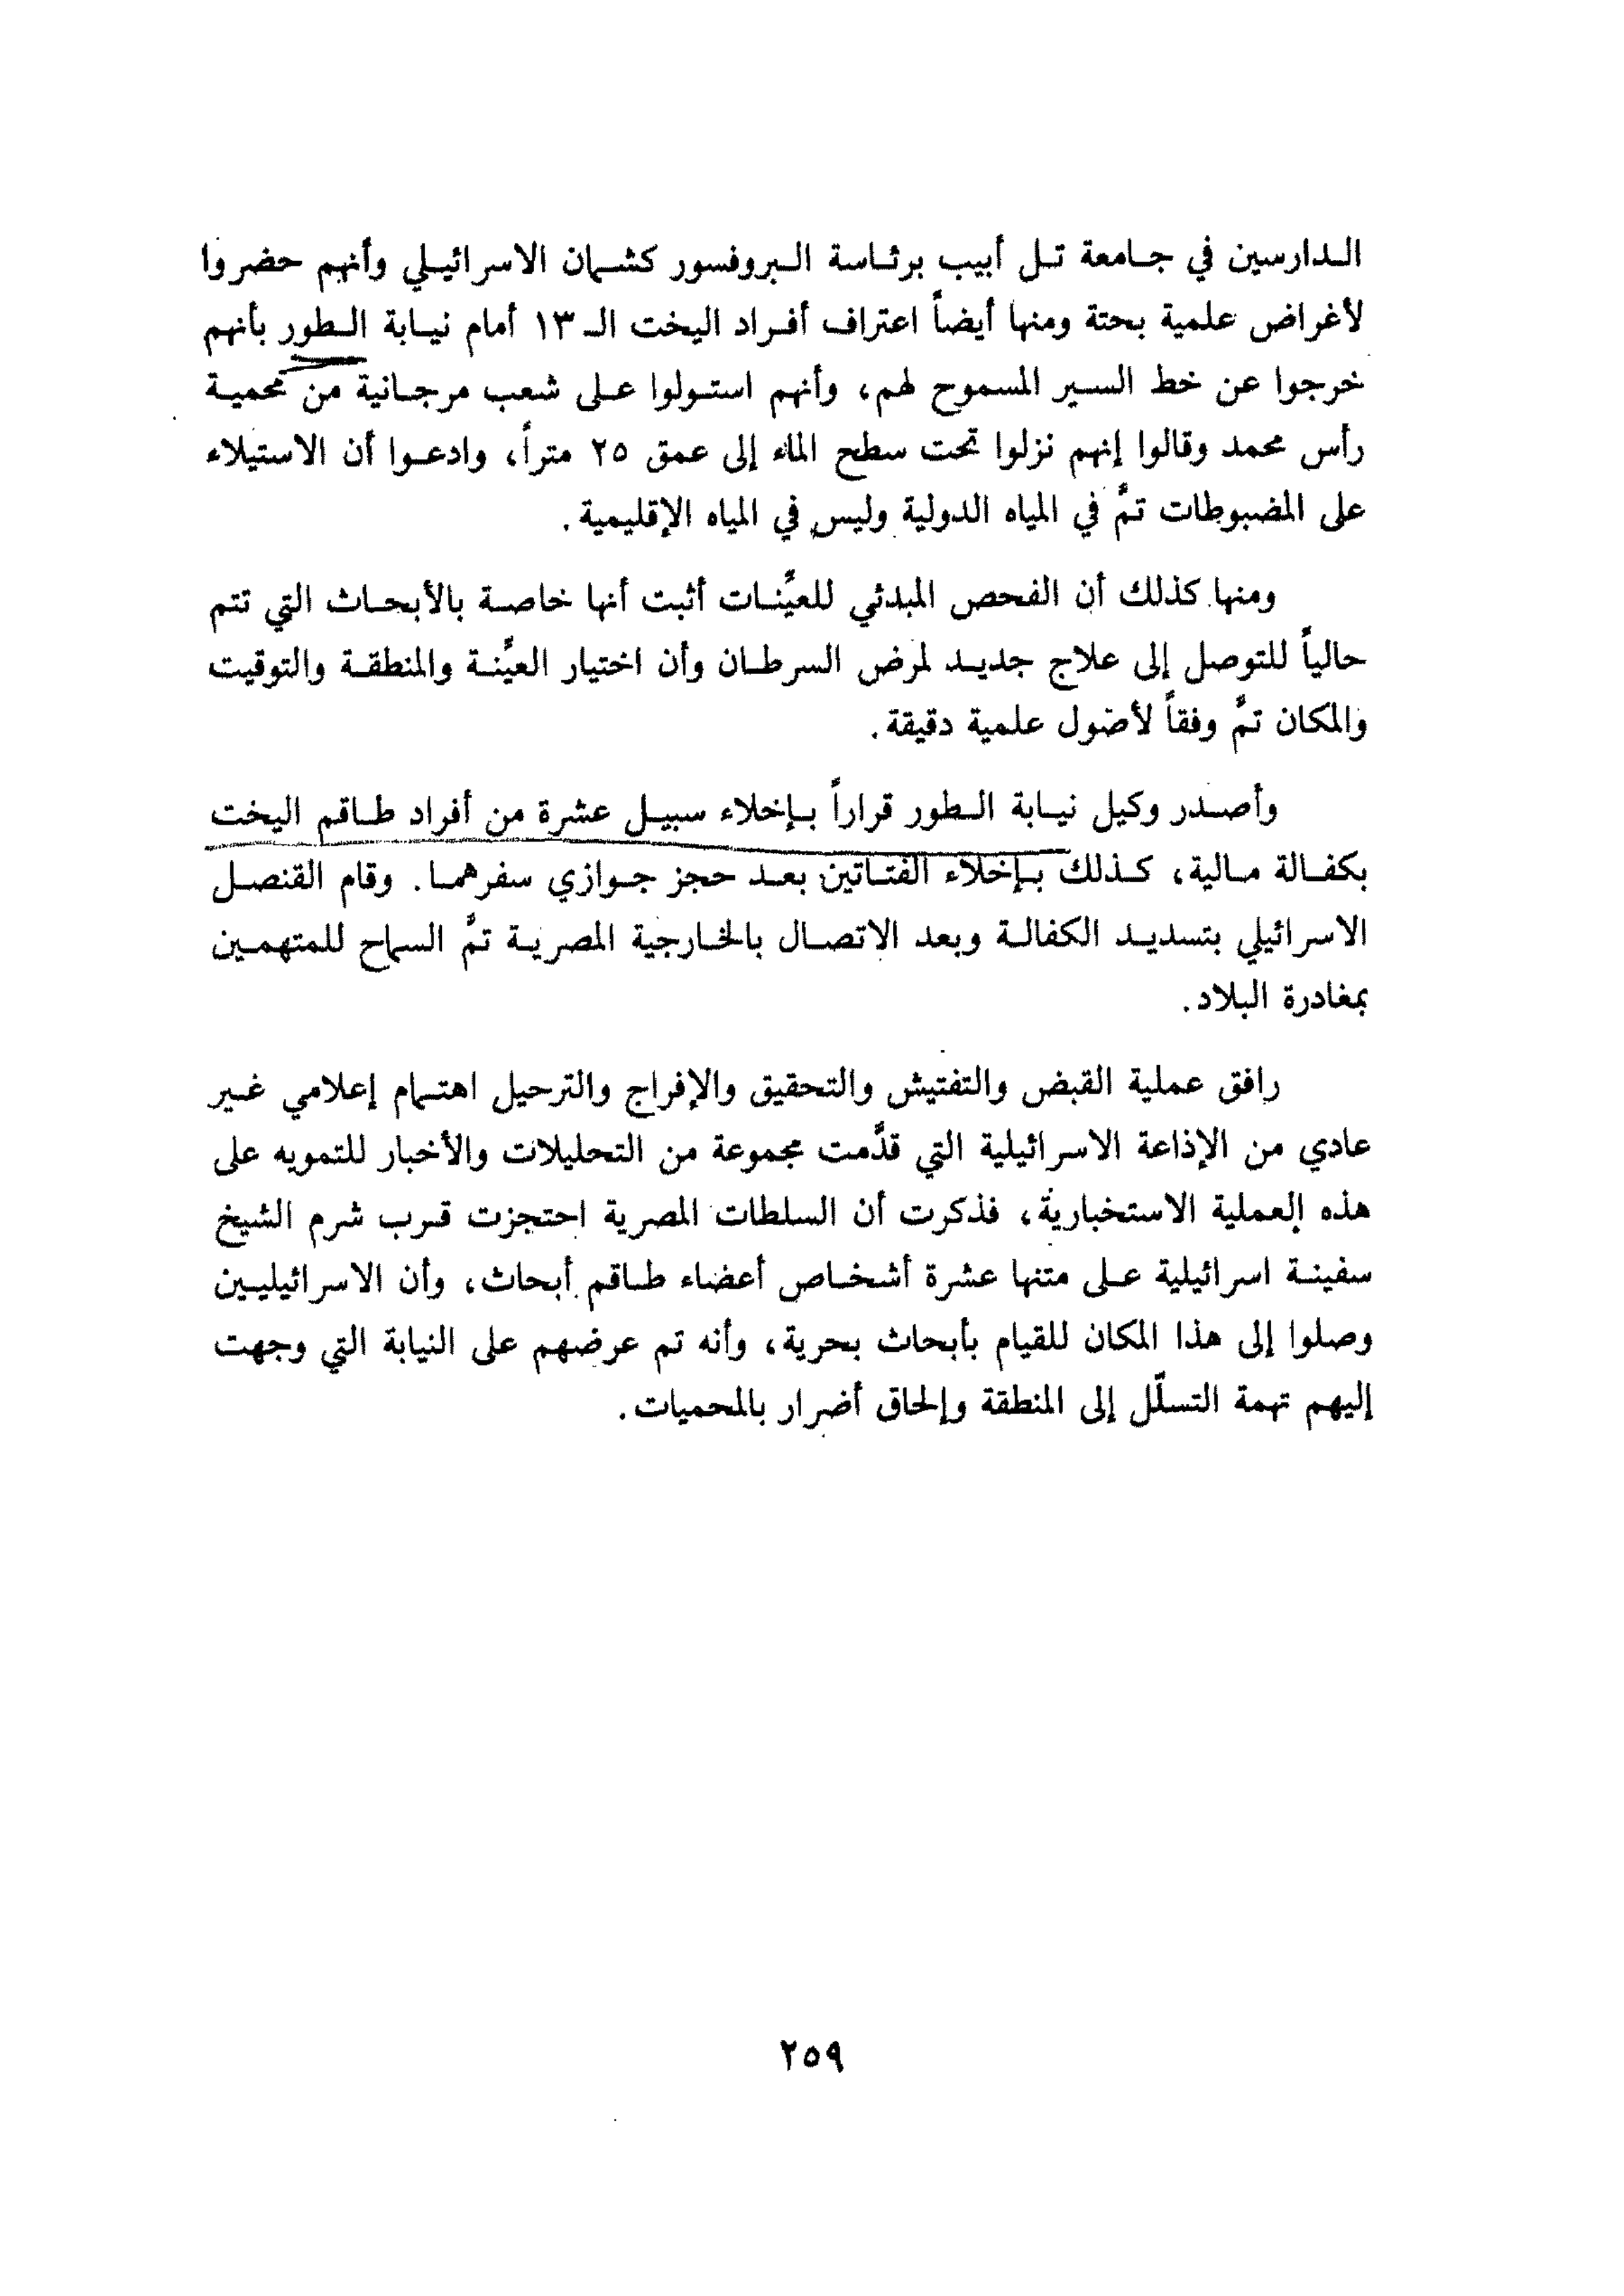 الدارسين في جامعة تل أبيب برئاسة البروفسور كشمان الاسرائيلي وأنهم حضروا
لأغراض علمية بحتة ومنها أيضاً اعتراف أفراد اليخت الـ ١٣ أمام نيابة الطور بأنهم
خرجوا عن خط السير المسموح لهم، وأنهم استولوا على شعب مرجانية من محمية
رأس محمد وقالوا إنهم نزلوا تحت سطح الماء إلى عمق ٢٥ متراً، وادعوا أن الاستيلاء
على المضبوطات تمَّ في المياه الدولية وليس في المياه الإقليمية.
ومنها كذلك أن الفحص المبدئي للعيَّنات أثبت أنها خاصة بالأبحاث التي تتم
حالياً للتوصل إلى علاج جديد لمرض السرطان وأن اختيار العيَّنة والمنطقة والتوقيت
والمكان تمَّ وفقاً لأصول علمية دقيقة.
وأصدر وكيل نيابة الطور قراراً بإخلاء سبيل عشرة من أفراد طاقم اليخت
بكفالة مالية، كذلك بإخلاء الفتاتين بعد حجز جوازي سفرهما. وقام القنصل
الاسرائيلي بتسديد الكفالة وبعد الاتصال بالخارجية المصرية تمَّ السماح للمتهمين
بمغادرة البلاد.
رافق عملية القبض والتفتيش والتحقيق والإفراج والترحيل اهتمام إعلامي غير
عادي من الإذاعة الاسرائيلية التي قدَّمت مجموعة من التحليلات والأخبار للتمويه على
هذه العملية الاستخبارية، فذكرت أن السلطات المصرية احتجزت قرب شرم الشيخ
سفينة اسرائيلية على متنها عشرة أشخاص أعضاء طاقم أبحاث، وأن الاسرائيليين
وصلوا إلى هذا المكان للقيام بأبحاث بحرية، وأنه تم عرضهم على النيابة التي وجهت
إليهم تهمة التسلّل إلى المنطقة وإلحاق أضرار بالمحميات.
٢٥٩